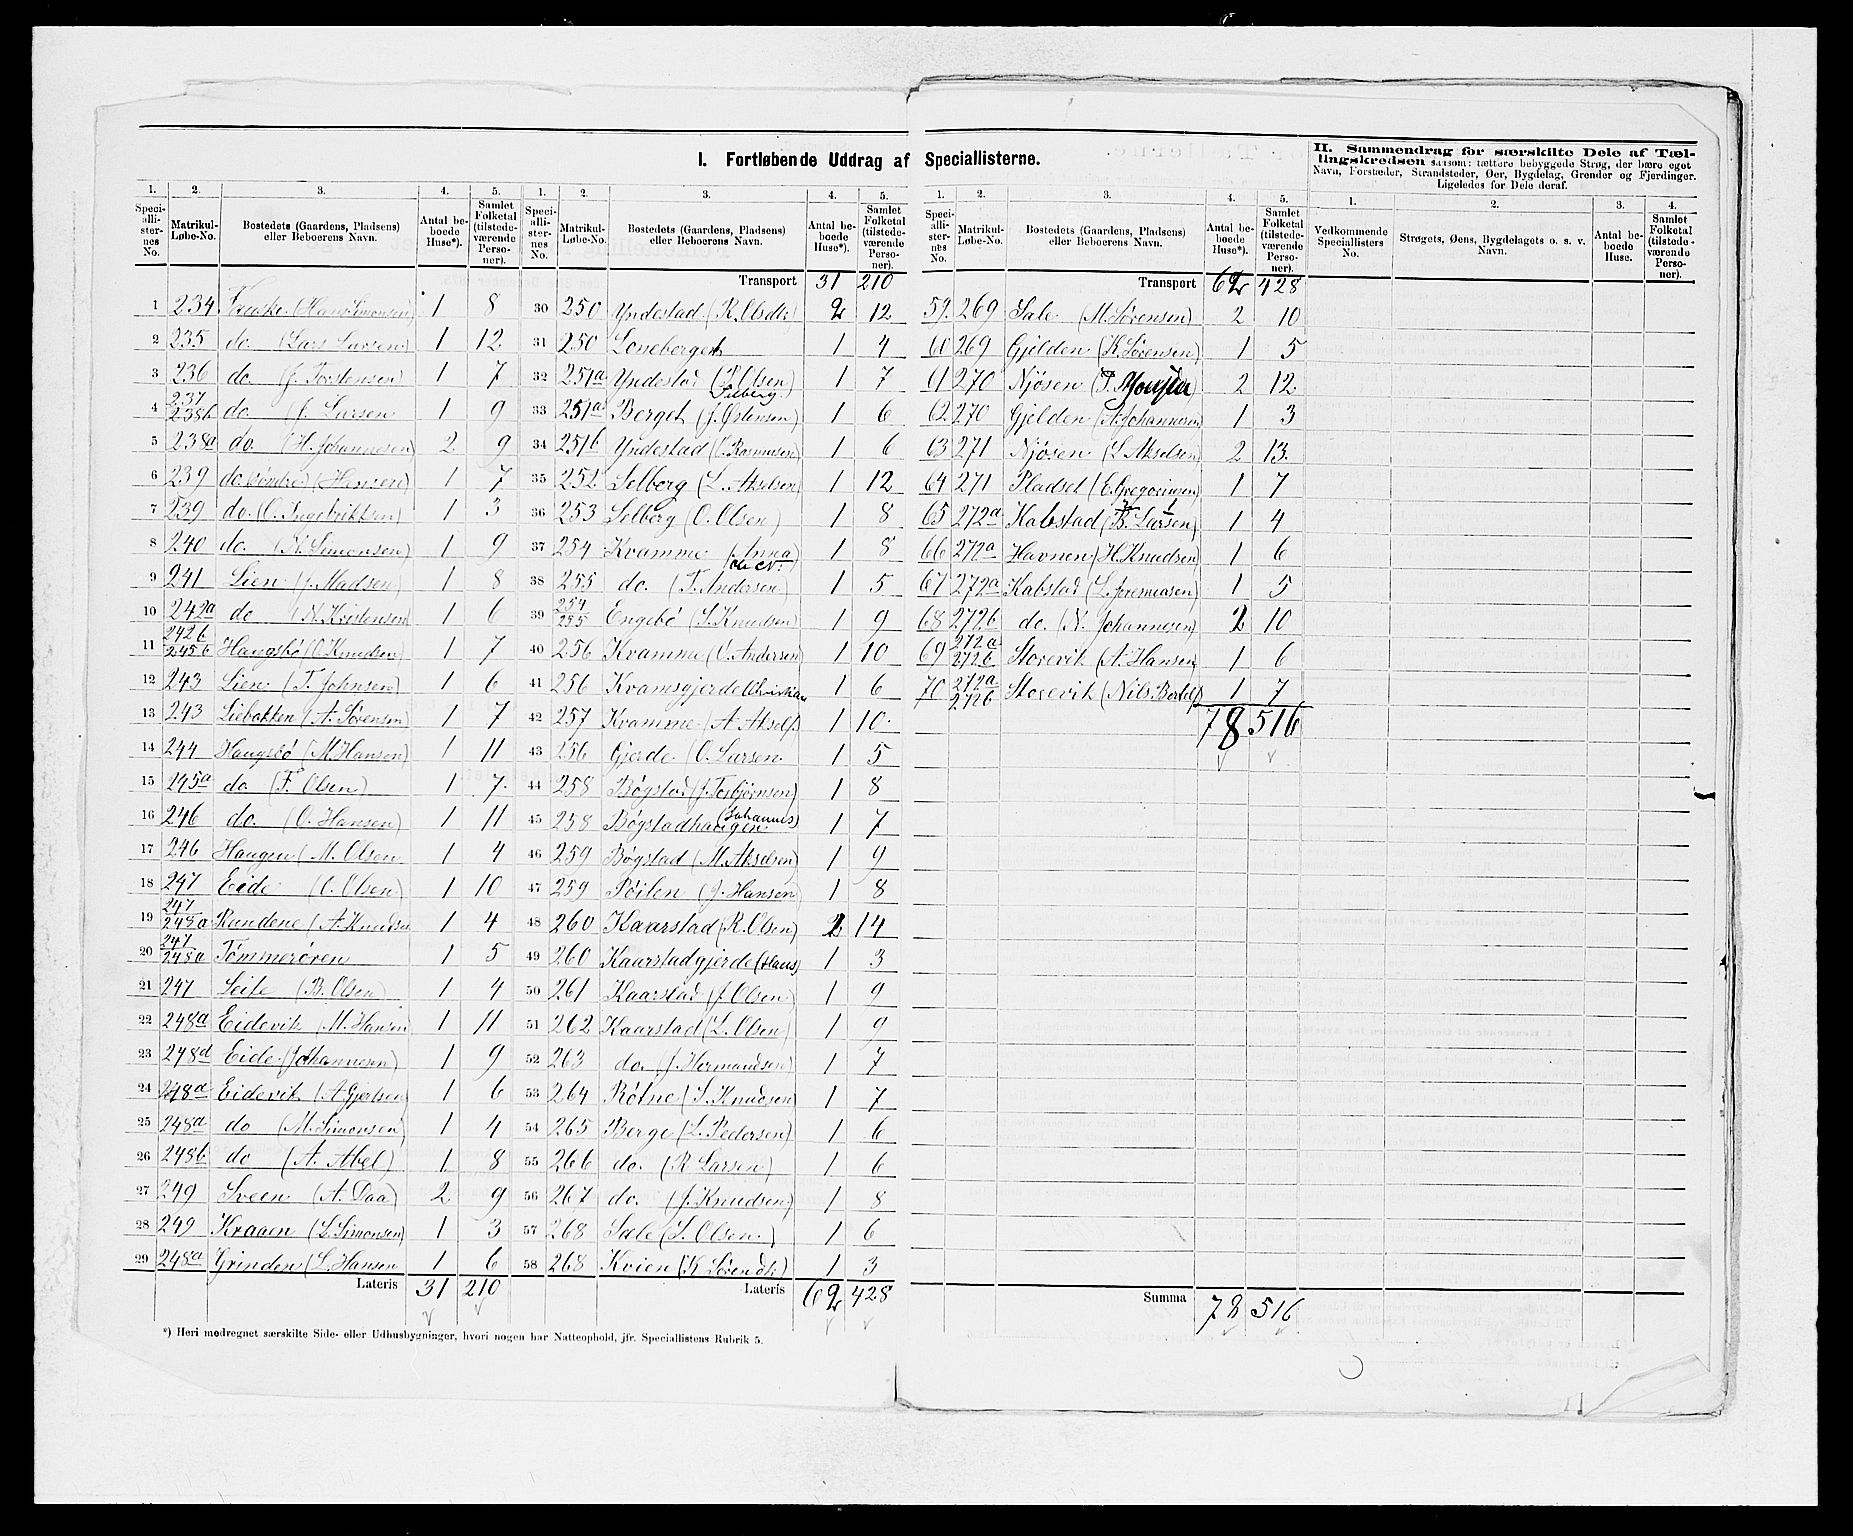 I. Fortløbende Uddrag af Speciallisterne.
1. 2. 3. 4. 5.
Speciallisternes No. Matrikul-Løbe-No. Bostedets (Gaardens, Pladsens) eller Beboerens Navn. Antal beboede Huse*). Samlet Folketal (tilstedeværende Personer).
1 234 (Hans Simonsen) 1 8
2 235 do. (Lars Larsen) 1 12
3 236 do. (J. Torstensen) 1 7
4 237 238b do. (J. Larsen 1 9
5 238a do. (H. Johannesen) 2 9
6 239 do. søndre (Hansen) 1 7
7 239 do. (O. Ingebriktsen) 1 3
8 240 do. (N. Simonsen) 1 9
9 241 Lien (J. Madsen) 1 8
10 242a do (N. Kristensen 1 6
11 242b 245b Haugsbø (O. Knudsen) 1 7
12 243 Lien (T. Johnsen) 1 6
13 243 Liebakken (A. Sørensen) 1 7
14 244 Haugsbø (M. Hansen) 1 11
15 245a do (F. Olsen) 1 7
16 246 do. (O. Hansen) 1 11
17 246 Haugen (M. Olsen 1 4
18 247 Eide (O. Olsen) 1 10
19 247 248a Rundene (A. Knudsen 1 4
20 247 248a Tømmerøren 1 5
21 247 Leite (B. Olsen) 1 4
22 248a Eidevik (M. Hansen 1 11
23 248d Eide (Johannesen) 1 9
24 248a Eidevik (A. Gjertsen) 1 6
25 248a do (M. Simonsen) 1 4
26 248b do (A. Abel) 1 8
27 249 Sveen (A. Daa) 2 9
28 249 Kraaen (L. Simonsen) 1 3
29 248a Grinden (L. Hansen 1 6
Lateris 31 210
1. 2. 3. 4. 5.
Speciallisternes No. Matrikul-Løbe-No. Bostedets (Gaardens, Pladsens) eller Beboerens Navn. Antal beboede Huse*). Samlet Folketal (tilstedeværende Personer).
Transport 31 210
30 250 Yndestad (R. Olsdtr) 2 12
31 250 Loneberget 1 4
32 251a Yndestad (R. Olsen) 1 7
33 251a Berget (J. Østensen) 1 6
34 251b Yndestad (O. Rasmusen) 1 6
35 252 Selberg (L. Akselsen) 1 12
36 253 Selberg (O. Olsen) 1 8
37 254 Kvamme (Anna) 1 8
38 255 do. (T. Andersen) 1 5
39 254 255 Engebø (S. Knudsen) 1 9
40 256 Kvamme (O. Andersen) 1 10
41 256 Kvamsgjerde (Christian 1 6
42 257 Kvamme (A. Aksels) 1 10
43 256 Gjerde (O. Larsen 1 5
44 258 Bøgstad (J. Torbjørnsen) 1 8
45 258 Bøgstadhaugen (Johannes) 1 7
46 259 Bøgstad (M. Akselsen) 1 9
47 259 Pøilen (J. Hansen) 1 8
48 260 Kaarstad (R. Olsen) 2 14
49 260 Kaarstadgjerde (Hans) 1 3
50 261 Kaarstad (J. Olsen) 1 9
51 262 Kaarstad (L. Olsen) 1 9
52 263 do. (J. Hermandsen) 1 7
53 264 Røtne (S. Knudsen 1 7
54 265 Berge (L. Pedersen) 1 6
55 266 do. (R. Larsen) 1 6
56 267 do. (J. Knudsen) 1 8
57 268 Sale (S. Olsen) 1 6
58 268 Kvien (K. Sørendtr) 1 3
Lateris 62 428
1. 2. 3. 4. 5.
Speciallisternes No. Matrikul-Løbe-No. Bostedets (Gaardens, Pladsens) eller Beboerens Navn. Antal beboede Huse*). Samlet Folketal (tilstedeværende Personer).
Transport 62 428
59. 269 Sale (M. Sørensen) 2 10
60 269 Gjelden (K. Sørensen) 1 5
61 270 Njøsen 2 12
62 270 Gjelden (A. Johannesen) 1 3
63 271 Njøsen (L. Akselsen 2 13.
64 271 Pladset (E. Gregoriusen) 1 7
65 272a Kalstad (B. Larsen) 1 4
66 272a Havnen (H. Knudsen) 1 6
67 272a Kalstad (L. Jeremiasen) 1 5
68 272b do. (N. Johannesen) 2 10
69 272a 272b Storevik (A. Hansen) 1 6
70 272a 272b Storevik (Nils Bertels) 1 7
78 516
Summa 78 516
II. Sammendrag for særskilte Dele af Tællingskredsen saasom: tættere bebyggede Strøg, der bære eget Navn, Forstæder, Strandsteder, Øer, Bygdelag, Grender og Fjerdinger. Ligeledes for Dele deraf.
1. 2. 3. 4.
Vedkommende Speciallisters No. Strøgets, Øens, Bygdelagets o. s. v. Navn. Antal beboede Huse. Samlet Folketal (tilstedeværende Personer.
*) Heri medregnet særskilte Side- eller Udhusbygninger, hvori nogen har Natteophold, jfr. Speciallistens Rubrik 5.